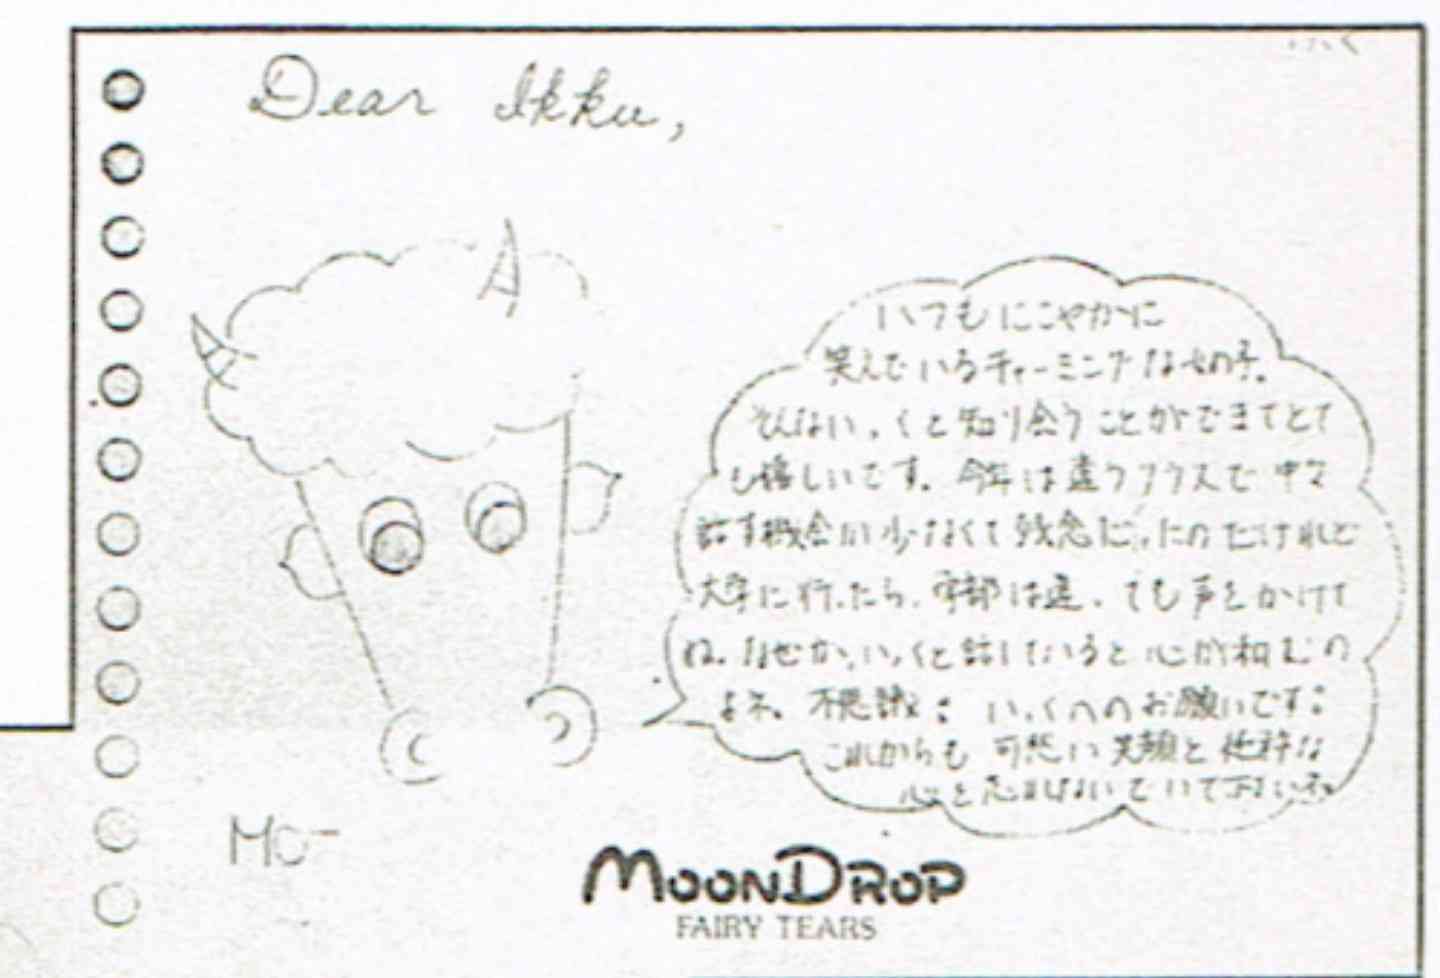 Dear Ikku,
いつもにこやかに
笑んでいるチャーミングな女の子。
そんないっくと知り合うことができてとて
も嬉しいです。今年は違うクラスで中々
話す機会が少なくて残念だったのだけれど
大学に行ったら、学部は違っても声をかけて
ね。なぜか、いっくと話していると心が和むの
よネ。不思議： いっくへのお願いです：
これからも 可愛い笑顔と 純粋な
心を忘れないでいて下さいネ
Mo-
MOONDROP
FAIRY TEARS